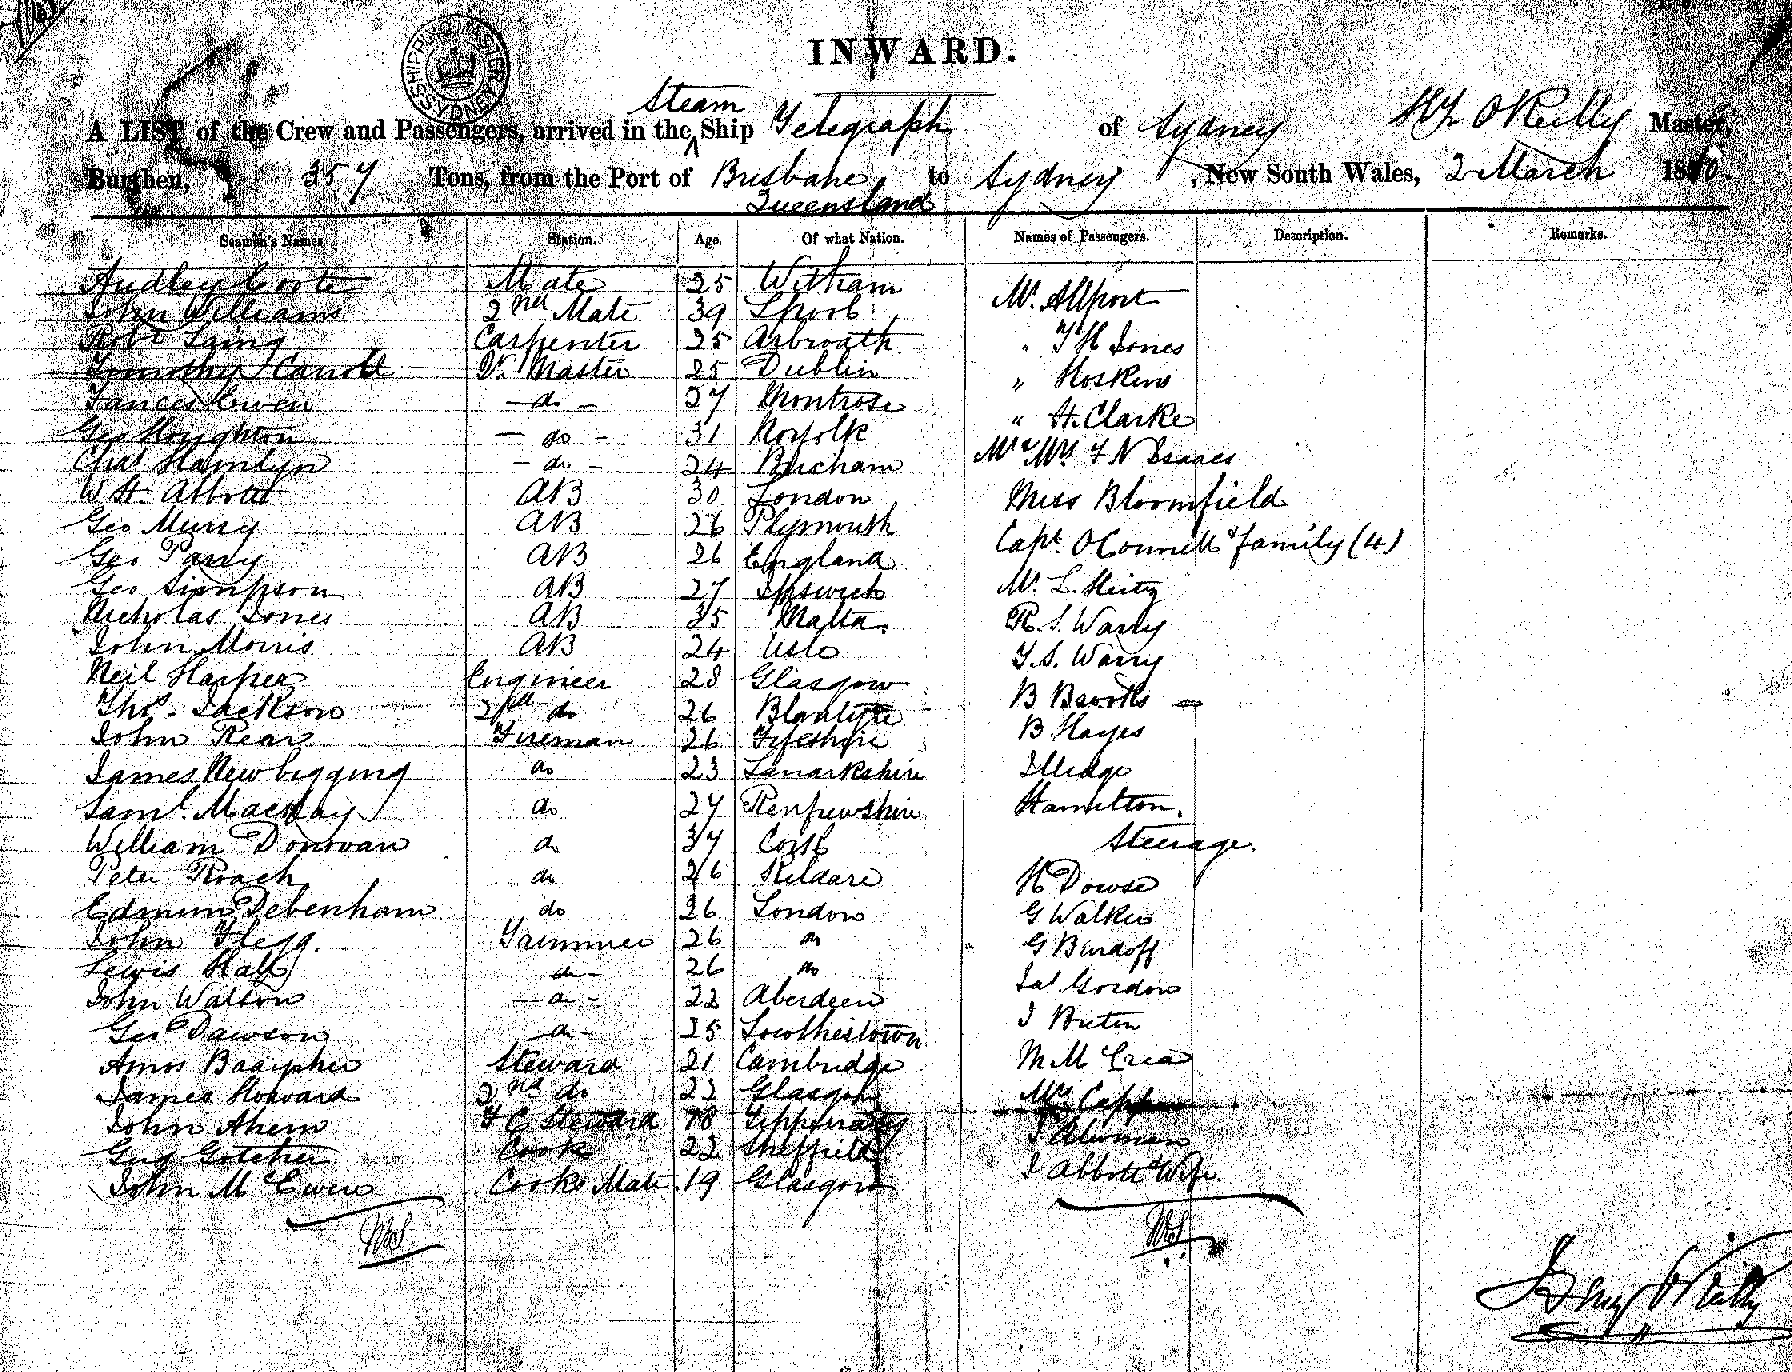 INWARD.
Steam
A LIST of the Crew and Passengers, arrived in the ^ Ship Telegraph of Sydney H O'Reilly Master,
Burthen, 357 Tons, from the Port of Brisbane to Sydney, New South Wales, 2 March 18
Queensland
Seaman's Names Station. Age. Of what Nation. Names of Passengers. Description. Remarks.
Audley Coote Mate 25 Witham Mr. Allport
John Williams 2nd Mate 39
Robt Laing Carpenter 25 Arbroath " T H Jones
Timothy Carroll Qr. Master 25 Dublin " Hoskins
James Ewen - do - 27 Montrose " H. Clarke
Geo Houghton - do - 31 Norfolk Mr & Mrs F N Isaacs
Chas Hamlyn - do - 24
W H. Abbott AB 30 London Miss Bloomfield
Geo Murry AB 26 Plymouth
Geo Parry AB 26 England Capt. O'Connell & family (4)
Geo Simpson AB 27 Ipswich Mr. L. Heitz
Nicholas Jones AB 35 Malta R. S. Warry
John Morris AB 24 T. S. Warry
Neil Harper Engineer 28 Glasgow
Thos. Jackson 2nd do 26 Blantyre B Brooks
John Rear Fireman 26 Fifeshire B Hayes
James Newbigging do 23 Lanarkshire Illidge
Saml. Mackay do 27 Renfrewshire Hamilton.
William Donovan do 37 Cork Steerage.
Peter Roach do 26 Kildare H Dowse
Edmund Debenham do 26 London G Walker
John Flegg. Trimmer 26 do G Burdoff
Lewis Hall do 26 do Jas Gordon
John Watson - do - 22 Aberdeen
Geo Dawson do 25 J
Amos Steward 21 Cambridge M McCrea
James Howard 2nd do 22 Glasgow Mrs
John Ahern F C Steward 18 Tipperary
Cook 22 Sheffield
John McEwen Cooks Mate 19 Glasgow J Abbott & Wife
Henry O'Reilly